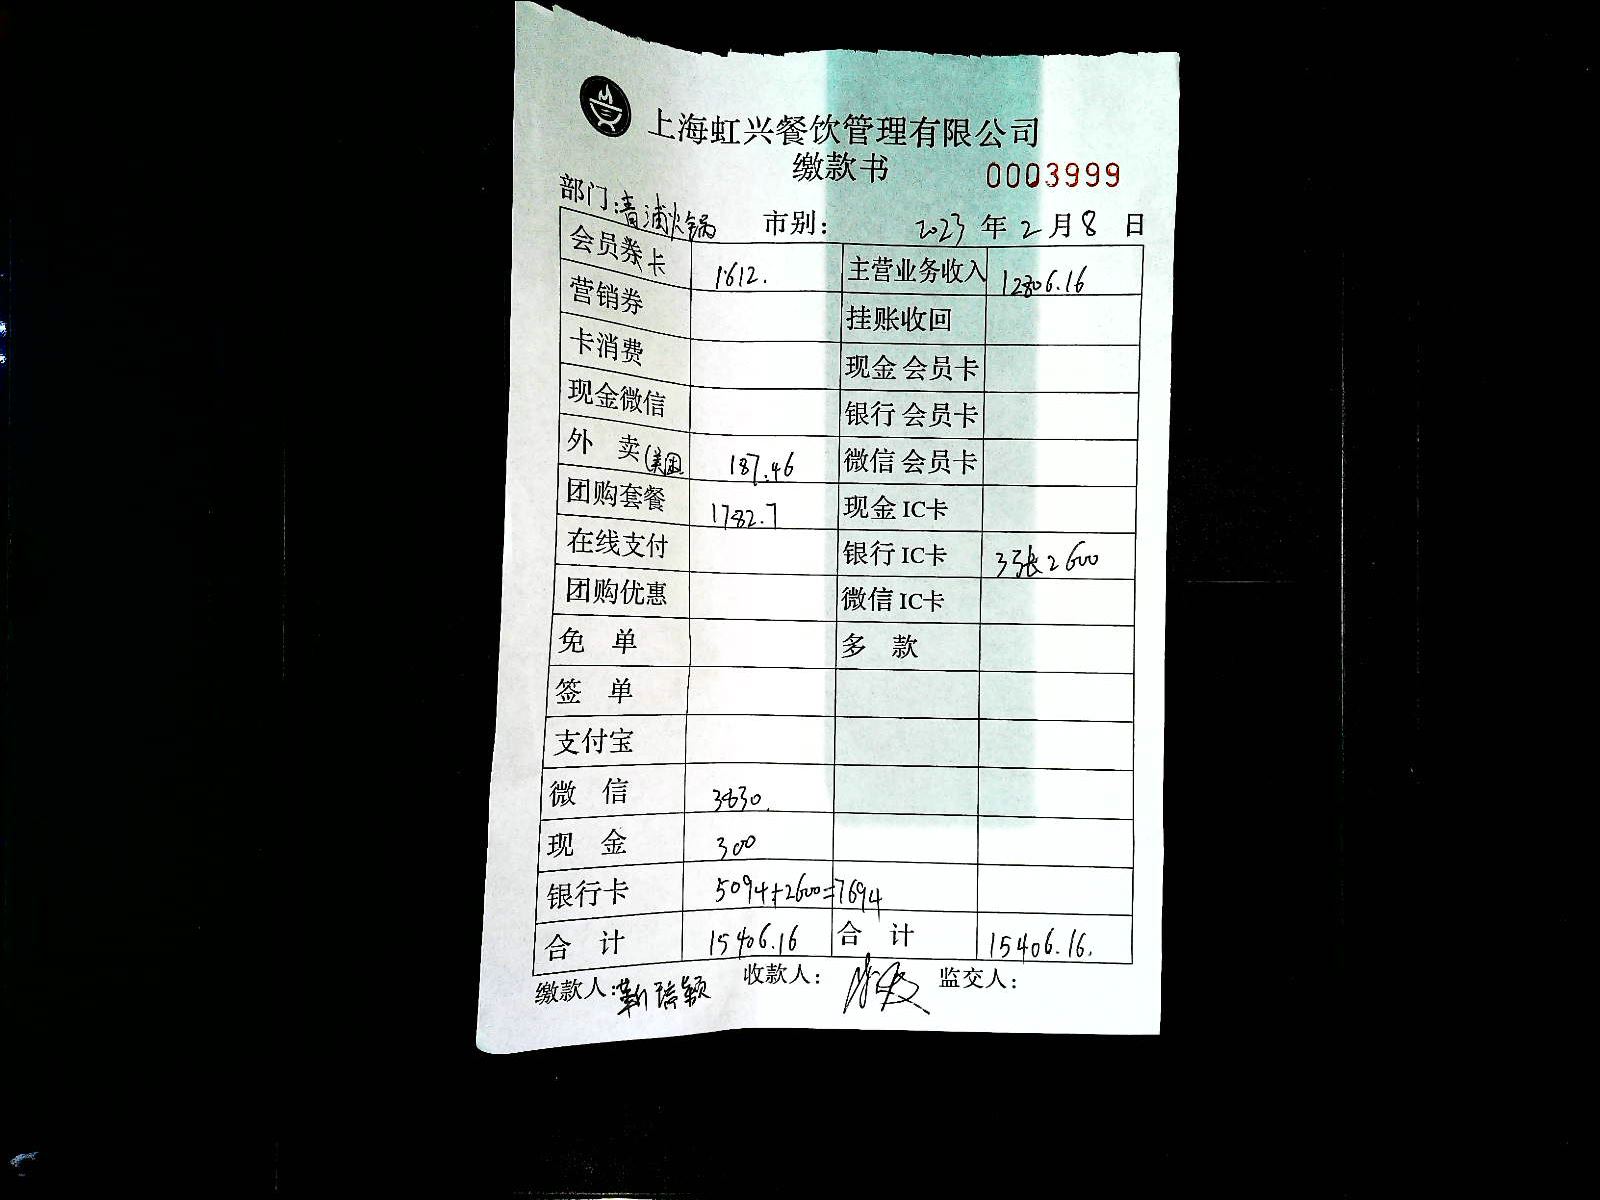 上海虹兴餐饮管理有限公司
缴款书 0003999
部门:青浦火锅 市别: 2023 年 2 月 8 日
会员券卡 1612. 主营业务收入 12806.16
营销券 挂账收回
卡消费 现金 会员卡
现金微信 银行 会员卡
外 卖(美团) 187.46 微信 会员卡
团购套餐 1782.7 现金 IC卡
在线支付 银行 IC卡 3张2600
团购优惠 微信 IC卡
免 单 多 款
签 单
支付宝
微 信 3830.
现 金 300
银行卡 5094+2600=7694
合 计 15406.16 合 计 15406.16.
缴款人: 收款人: 监交人: